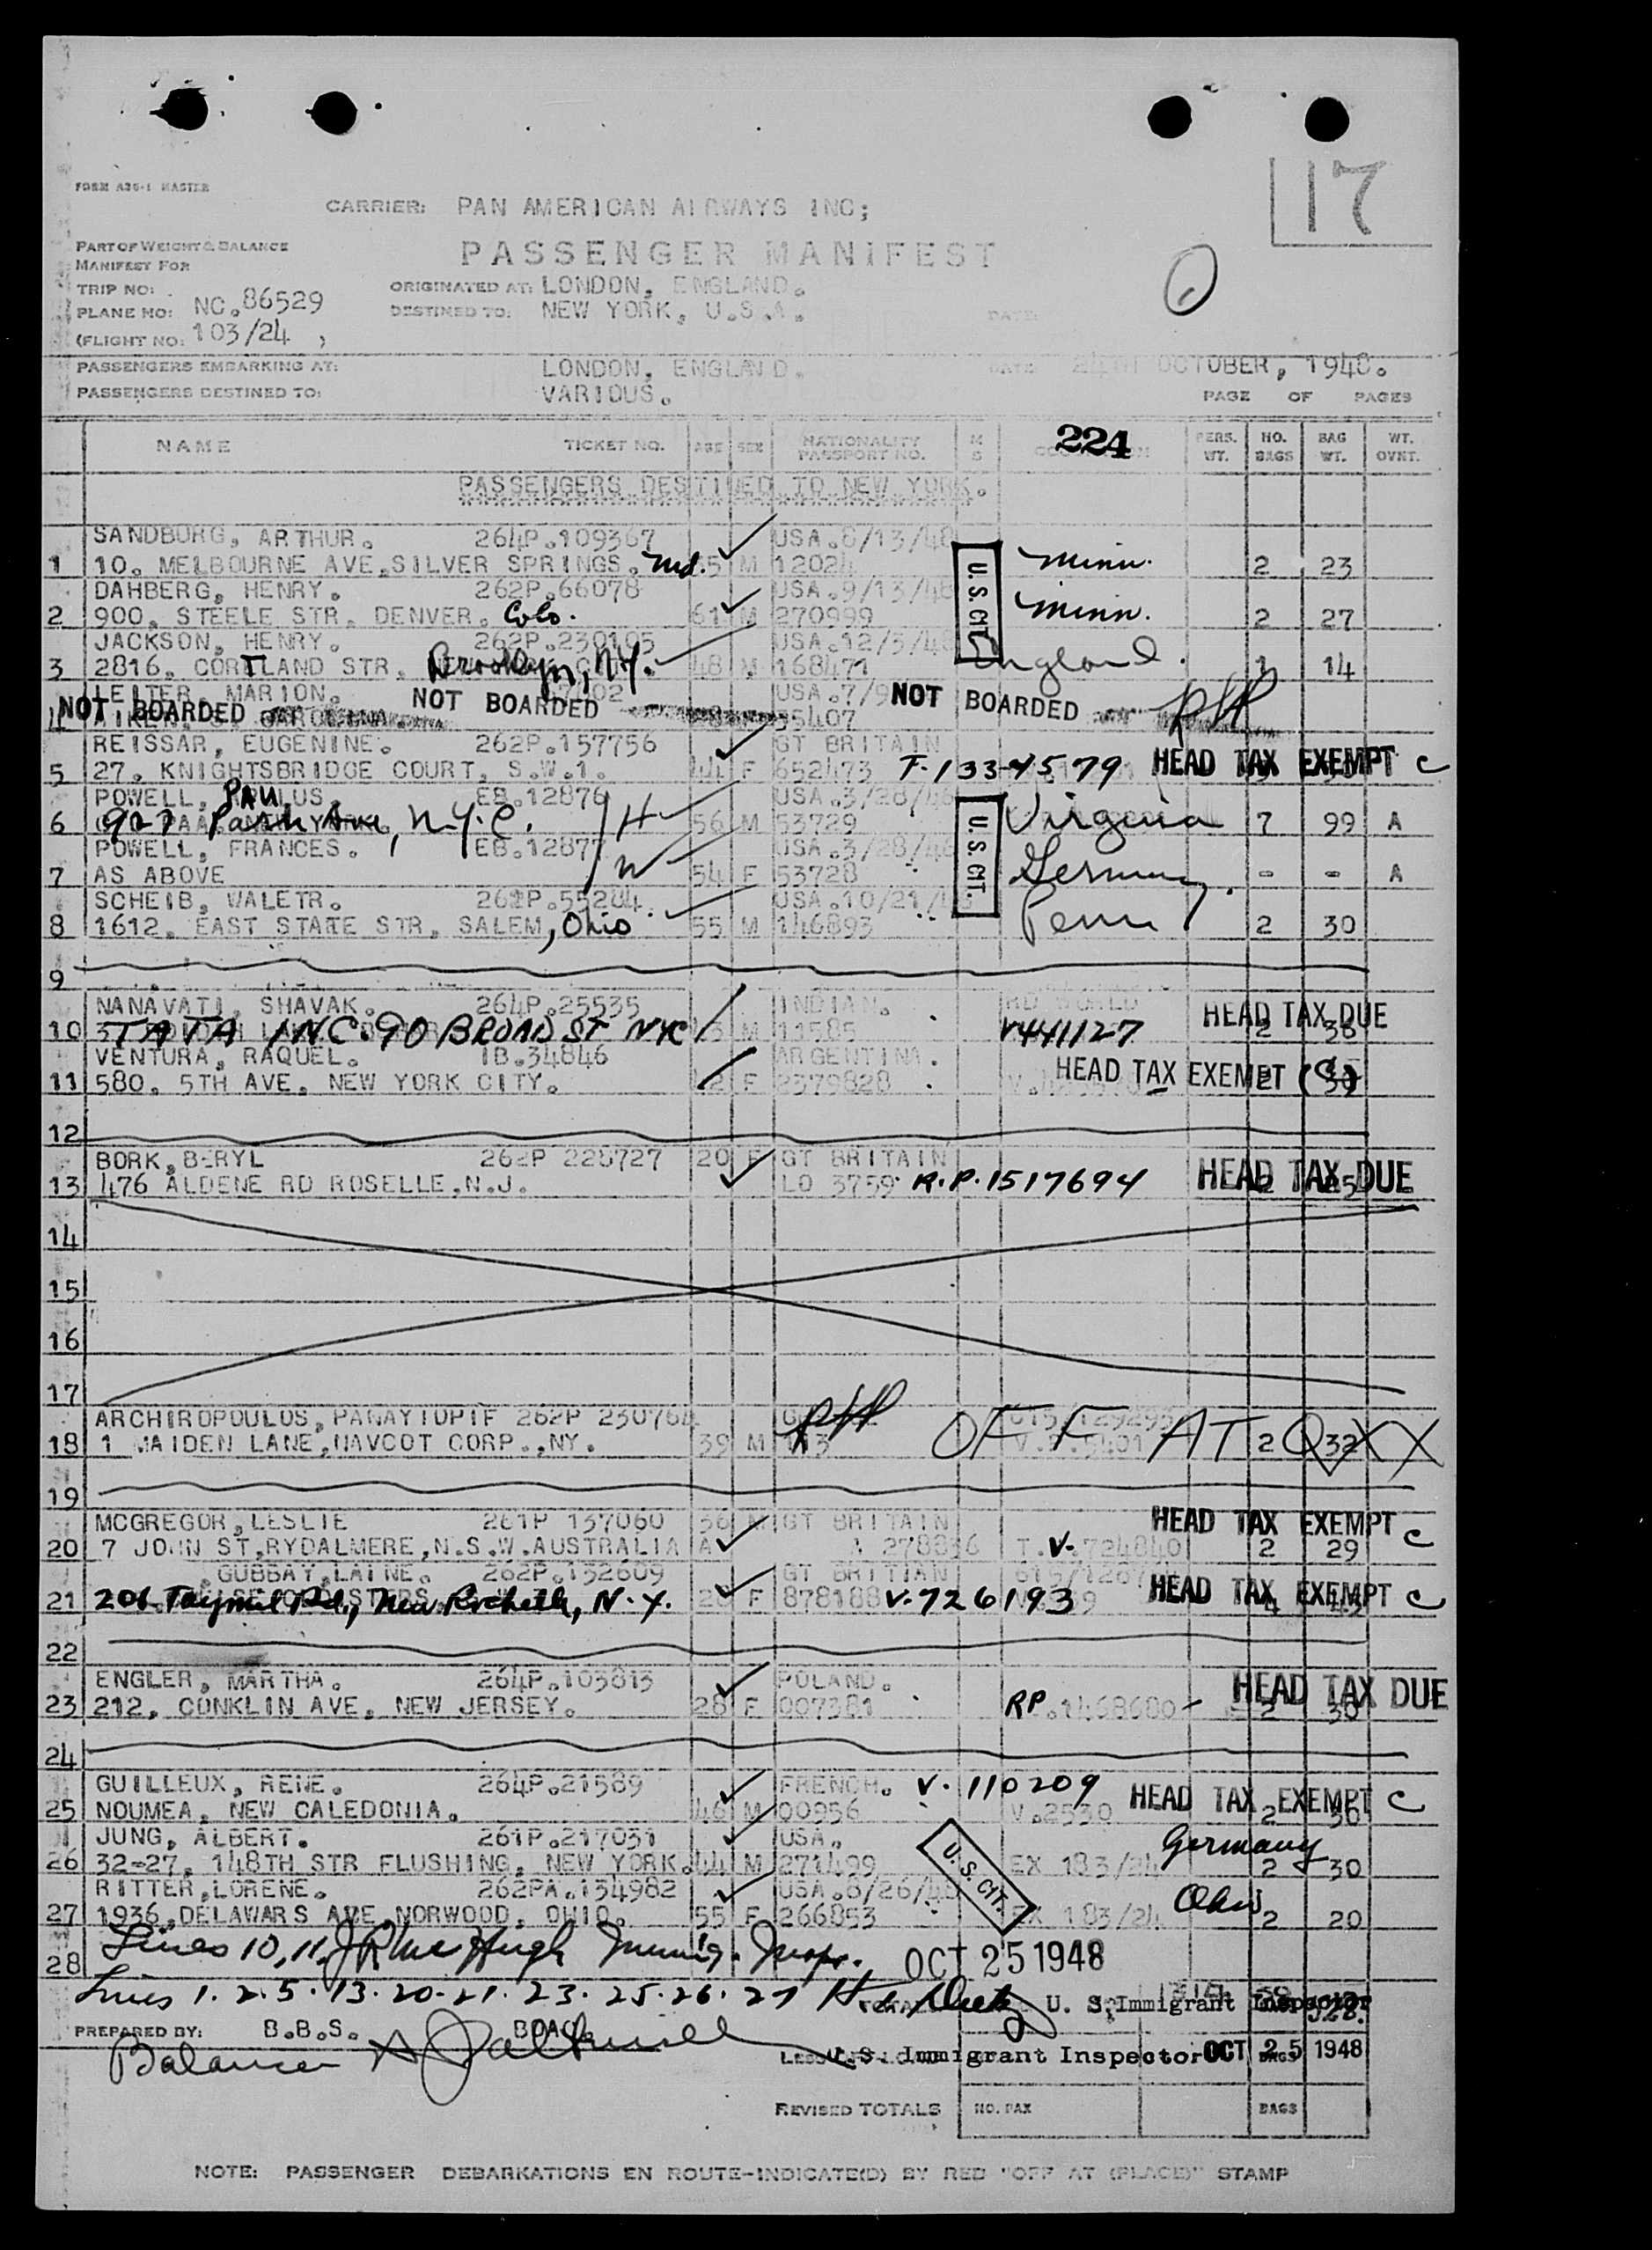 17
FORM A26-1 MASTER
CARRIER: PAN AMERICAN AIRWAYS INC;
PART OF WEIGHT & BALANCE
MANIFEST FOR
PASSENGER MANIFEST
TRIP NO:
ORIGINATED AT: LONDON, ENGLAND.
PLANE NO: NC.86529
DESTINED TO: NEW YORK, U.S.A.
DATE:
(FLIGHT NO: 103/24 )
PASSENGERS EMBARKING AT: LONDON, ENGLAND. DATE OCTOBER, 1948.
PASSENGERS DESTINED TO: VARIOUS. PAGE OF PAGES
NAME TICKET NO. AGE SEX NATIONALITY PASSPORT NO. M S 224 PERS. WT. NO. BAGS BAG WT. WT. OVNT.
PASSENGERS DESTINED TO NEW YORK.
SANDBURG, ARTHUR. 264P.109367 USA.8/13/48
1 10. MELBOURNE AVE.SILVER SPRINGS. Md. M U.S. CIT. Minn. 2 23
DAHBERG, HENRY. 262P.66078 USA.9/13/48
2 900. STEELE STR. DENVER. Colo. 61 M 270999 Minn. 2 27
JACKSON, HENRY. 262P.230105 USA.12/3/48
3 2816. CORTLAND STR. Brooklyn, N.Y. 48 M 168471 England. 1 14
LEITER, MARION. USA.7/9
4 NOT BOARDED NOT BOARDED 35407 NOT BOARDED
REISSAR, EUGENINE. 262P.157756 GT BRITAIN
5 27. KNIGHTSBRIDGE COURT, S.W.1. 44 F 652473 T-1334579 HEAD TAX EXEMPT C
POWELL, PAULUS EB.12876 USA.3/28/46
6 927 Park Ave, N.Y.C. H 56 M 53729 U.S. CIT. Virginia 7 99 A
POWELL, FRANCES. EB.12877 USA.3/28/46
7 AS ABOVE W 54 F 53728 Germany. - - A
SCHEIB, WALETR. 262P.55204 USA.10/21/
8 1612. EAST STATE STR. SALEM, Ohio 55 M 146893 Penn 2 30
9
NANAVATI, SHAVAK. 264P.25535 INDIAN.
10 TATA INC. 90 BROAD ST NYC M 11585 V441127 HEAD TAX DUE 2 38
VENTURA, RAQUEL. IB.34846 ARGENTINA.
11 580. 5TH AVE. NEW YORK CITY. F 2379828 HEAD TAX EXEMPT (C)
12
BORK, BERYL 262P 228727 20 F GT BRITAIN
13 476 ALDENE RD ROSELLE, N.J. LO 3759 R.P. 1517694 HEAD TAX DUE
14
15
16
17
ARCHIROPOULOS, PANAYIOPIF 262P 230764
18 1 MAIDEN LANE, NAVCOT CORP.,NY. 39 M OFF AT 2 32
19
MCGREGOR, LESLIE 261P 137060 36 M GT BRITAIN HEAD TAX EXEMPT C
20 7 JOHN ST,RYDALMERE,N.S.W.AUSTRALIA A 278836 T.V.724840 2 29
GUBBAY, LAINE. 262P.132609 GT BRITIAN
21 F 878188 V-726193 HEAD TAX EXEMPT C
22
ENGLER, MARTHA. 264P.103813 POLAND.
23 212. CONKLIN AVE. NEW JERSEY. 28 F 007381 RP.1468680 HEAD TAX DUE 2 30
24
GUILLEUX, RENE. 264P.21589 FRENCH. V-110209
25 NOUMEA. NEW CALEDONIA. 46 M 00956 V.2530 HEAD TAX EXEMPT C
JUNG, ALBERT. 261P.217031 USA.
26 32-27. 148TH STR FLUSHING. NEW YORK. 44 M 271499 U.S. CIT. EX 183/24 Germany 2 30
RITTER, LORENE. 262PA.134982 USA.8/26/48
27 1936.DELAWARS AVE NORWOOD. OHIO. 55 F 266853 EX 183/24 Ohio 2 20
28 Lines 10, 11, J R McHugh Immig. Insp. OCT 25 1948
Lines 1. 2. 5. 13. 20. 21. 23. 25. 26. 27 U. S. Immigrant Inspector
PREPARED BY: B.B.S. BOAC
Balance
U.S. Immigrant Inspector OCT 25 1948
REVISED TOTALS NO. PAX BAGS
NOTE: PASSENGER DEBARKATIONS EN ROUTE-INDICATE(D) BY RED "OFF AT (PLACE)" STAMP